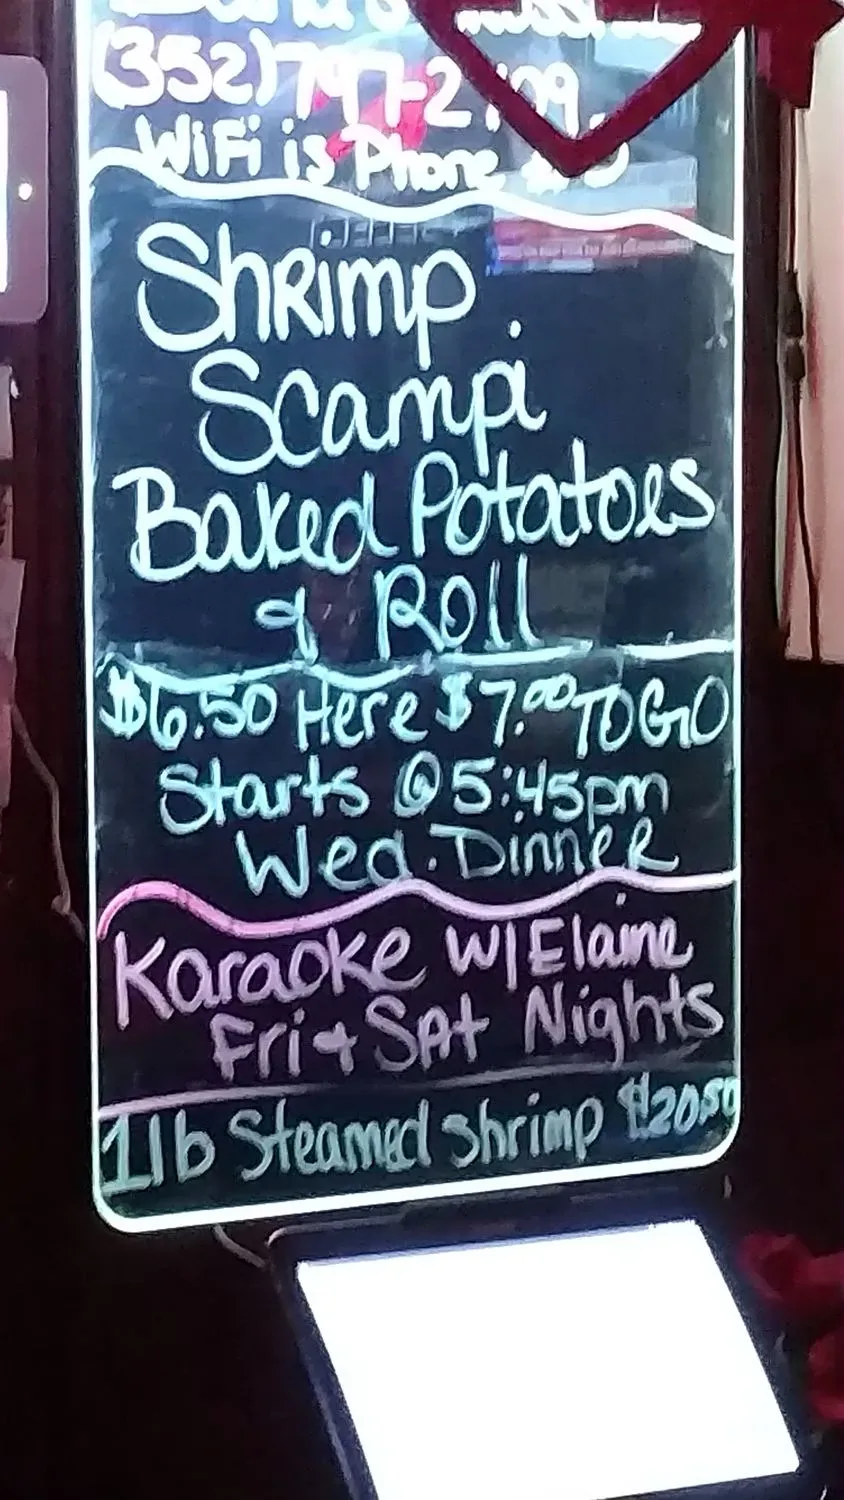 WiFi is Phone
Shrimp
Scampi
Baked Potatoes
& Roll
$6.50 Here $7.00 TO GO
Starts @ 5:45pm
Wed. Dinner
Karaoke w/ Elaine
Fri & Sat Nights
1 lb Steamed Shrimp $20.50